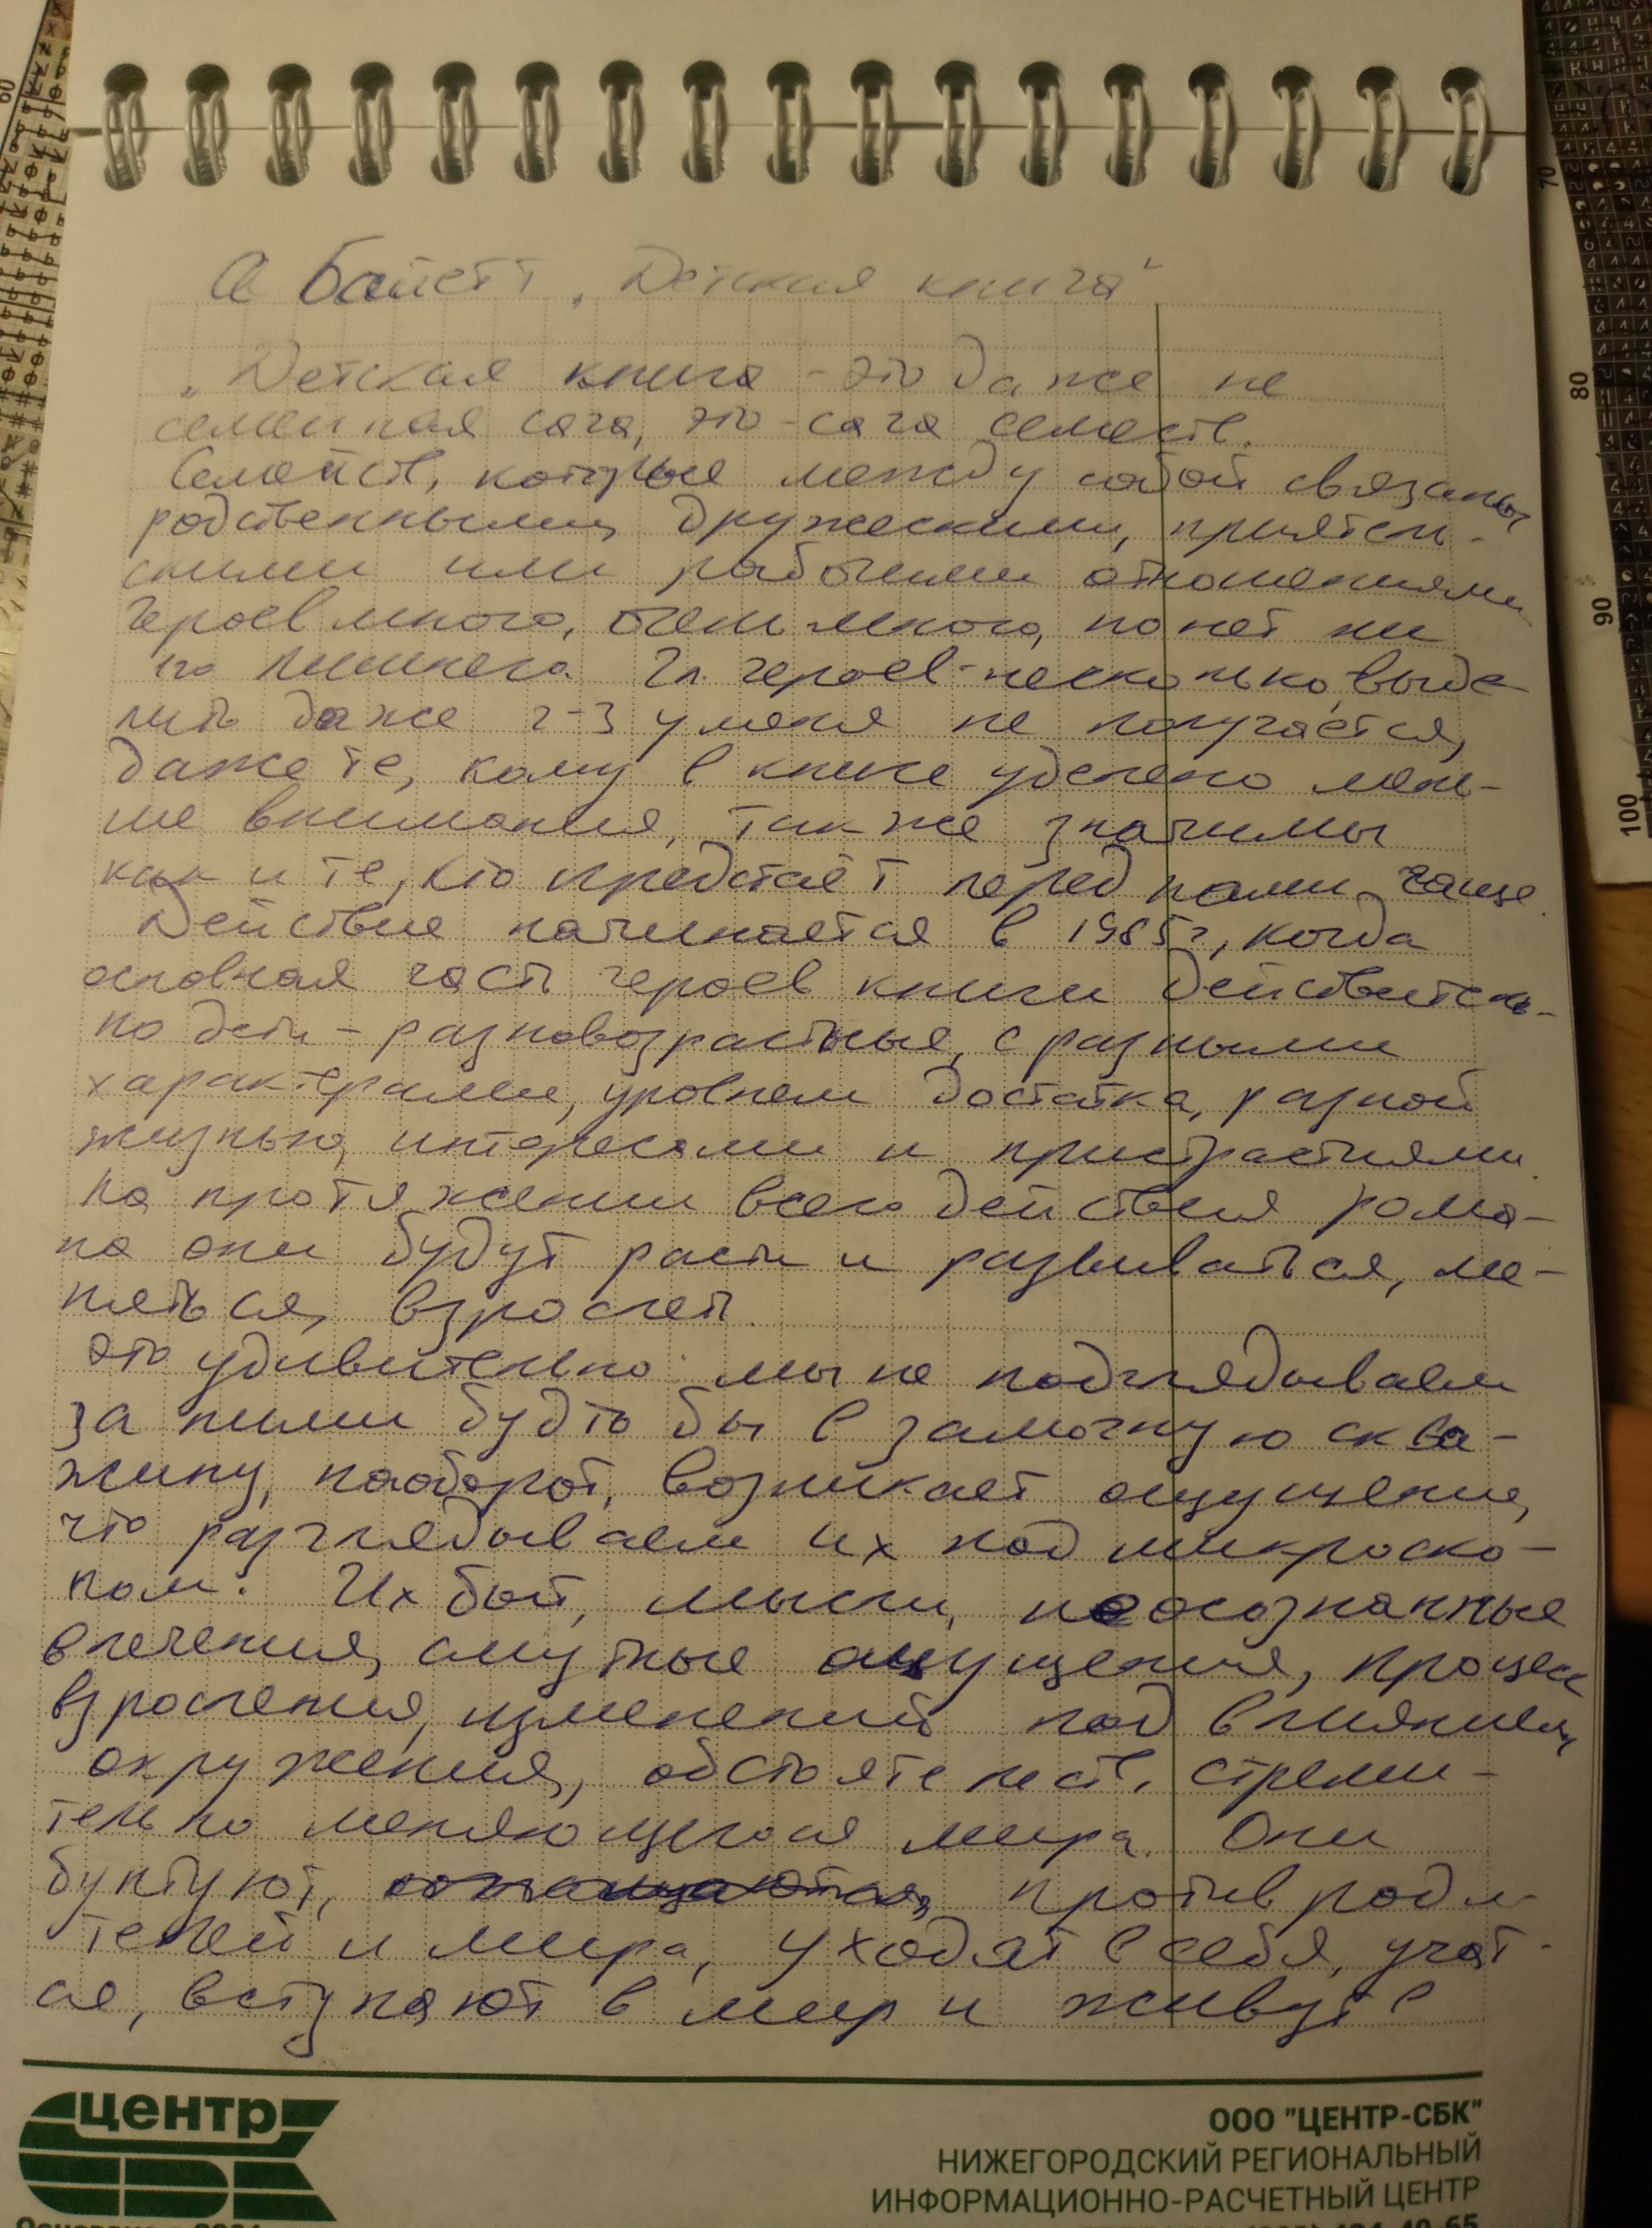 А Байетт „Детская книга"
„Детская книга - это даже не
семейная сага, это - сага семейств.
Семейств, которые между собой связаны
родственными, дружескими, приятель-
скими или рабочими отношениями
Героев много, очень много, но нет ни
го лишнего. Гл. героев - несколько, выде-
лить даже 2-3 у меня не получается,
даже те, кому в книге уделено мень-
ше внимания, так же значимы
как и те, кто предстаёт перед нами чаще.
Действие начинается в 1985 г, когда
основная часть героев книги действитель-
но дети - разновозрастные, с разными
характерами, уровнем достатка, разной
жизнью, интересами и пристрастиями.
На протяжении всего действия рома-
на они будут расти и развиваться, ме-
няться, взрослеть.
Это удивительно: мы не подглядываем
за ними будто бы в замочную сква-
жину, наоборот, возникает ощущение,
что разглядываем их под микроско-
пом. Их быт, мысли, неосознанные
влечения, смутные ощущения, процесс
взросления, изменений под влиянием
окружения, обстоятельств, стреми-
тельно меняющегося мира. Они
бунтуют, против роди-
телей и мира, уходят в себя, учат-
ся, вступают в мир и живут в
центр
СБК
ООО "ЦЕНТР-СБК"
НИЖЕГОРОДСКИЙ РЕГИОНАЛЬНЫЙ
ИНФОРМАЦИОННО-РАСЧЕТНЫЙ ЦЕНТР
60
70
80
90
100